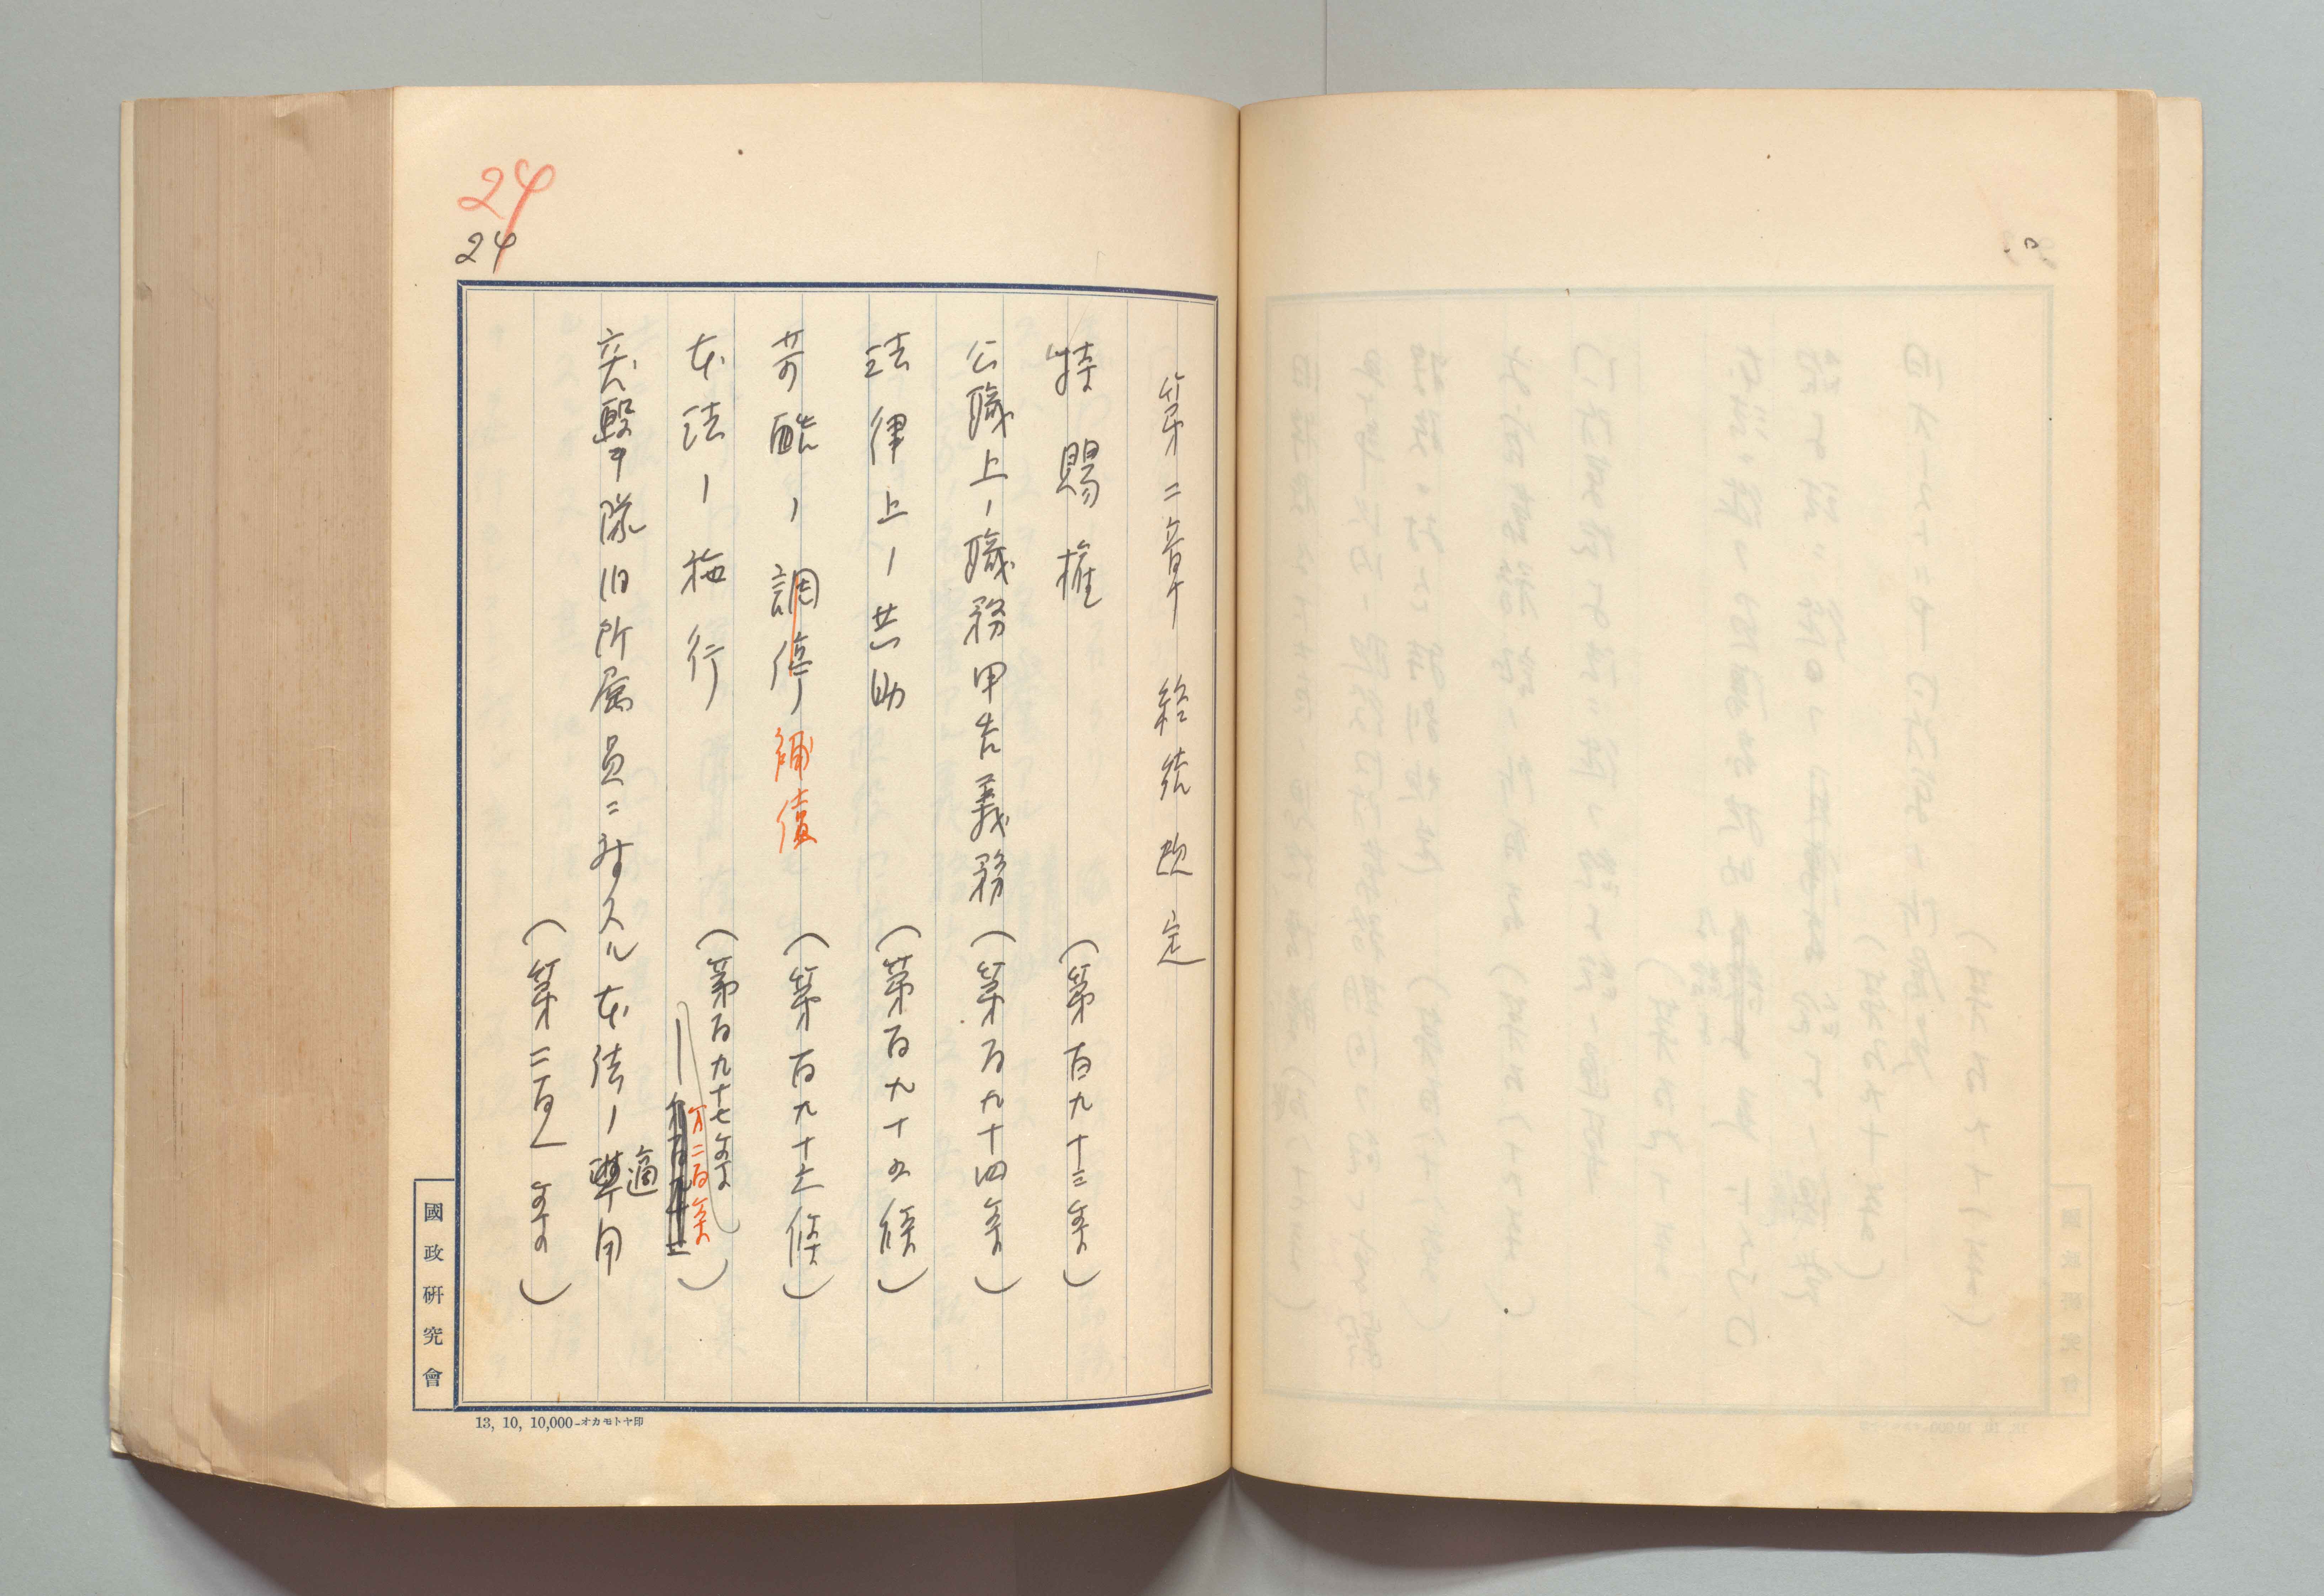 24
24
第二章 終結規定
特赐權 (第百九十三条)
公職上ノ職務申告義務 (第百九十四条)
法律上ノ共助 (第百九十五條)
苛酷ノ調停 補償 (第百九十六條)
本法ノ施行 (第百九十七条 第二百条)
突撃隊旧所属員ニ対スル本法ノ適用
(第二百一条)
國政研究會
13, 10, 10,000-オカモトヤ印